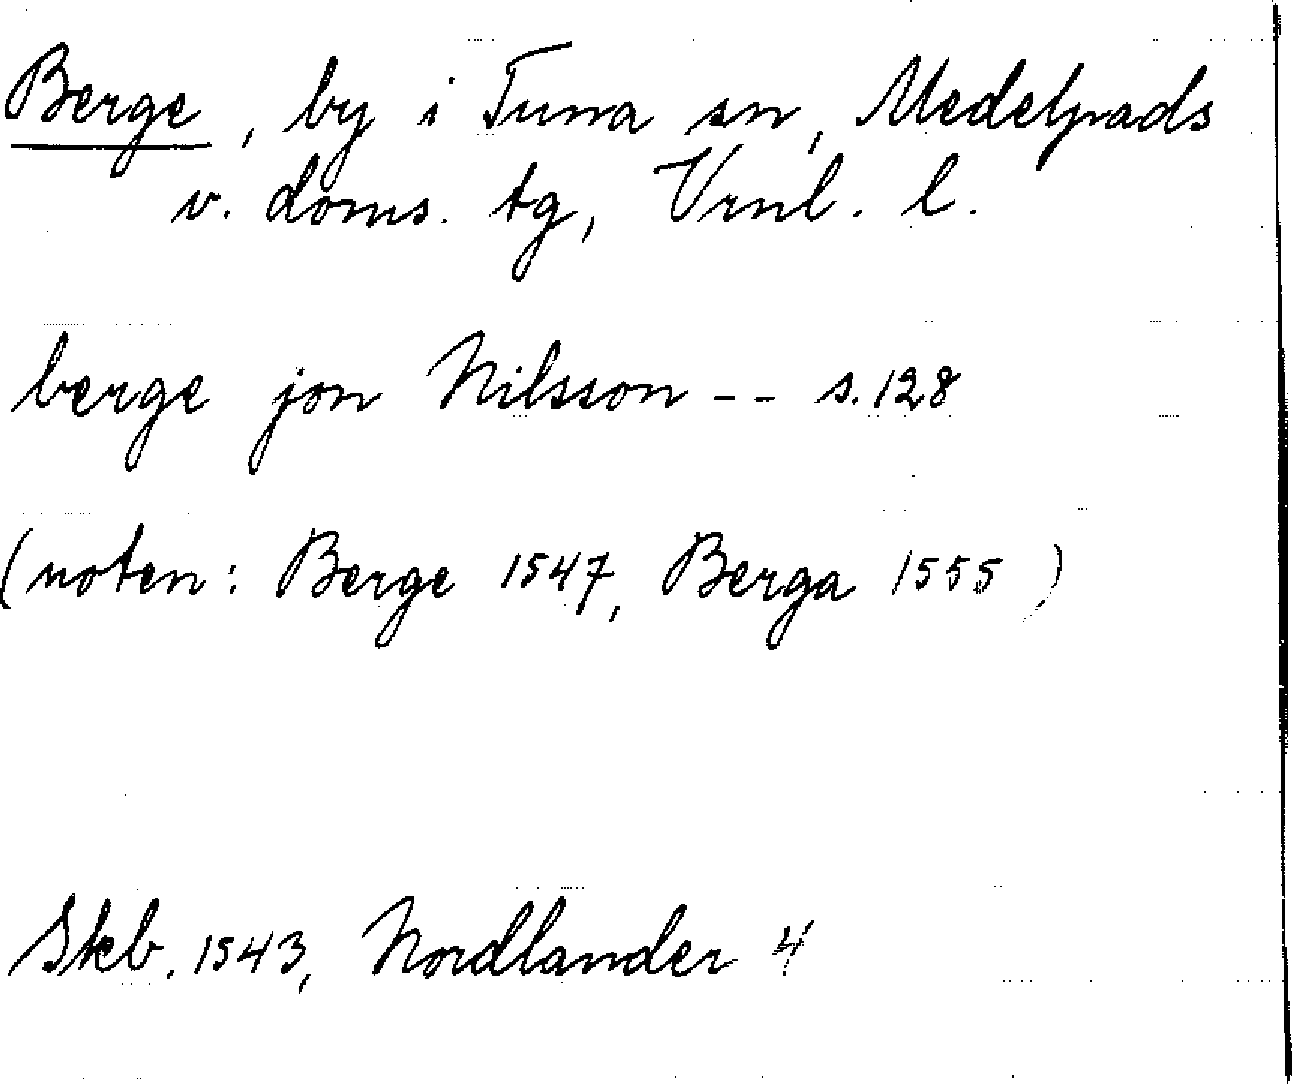 Berge, by i Tuna sn, Medelpads
v. doms. tg, Vrnl. l.
berge jon Nilsson -- s. 128
(noten: Berge 1547, Berga 1555)
Skb. 1543, Nordlander 4